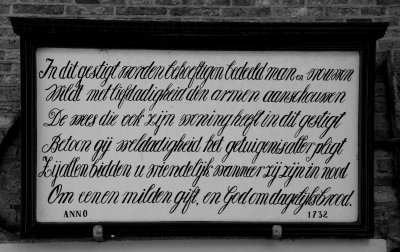 In dit gestigt worden behoeftigen bedeeld man en vrouwen
Wildt met liefdadigheid den armen aanschouwen
De wees die ook zijn woning heeft in dit gestigt
Betoon gij weldadigheid het getuigenis aller pligt
Zij allen bidden u vriendelijk wanneer zij zijn in nood
Om eenen milden gift, en God om dagelijks brood.
ANNO 1732